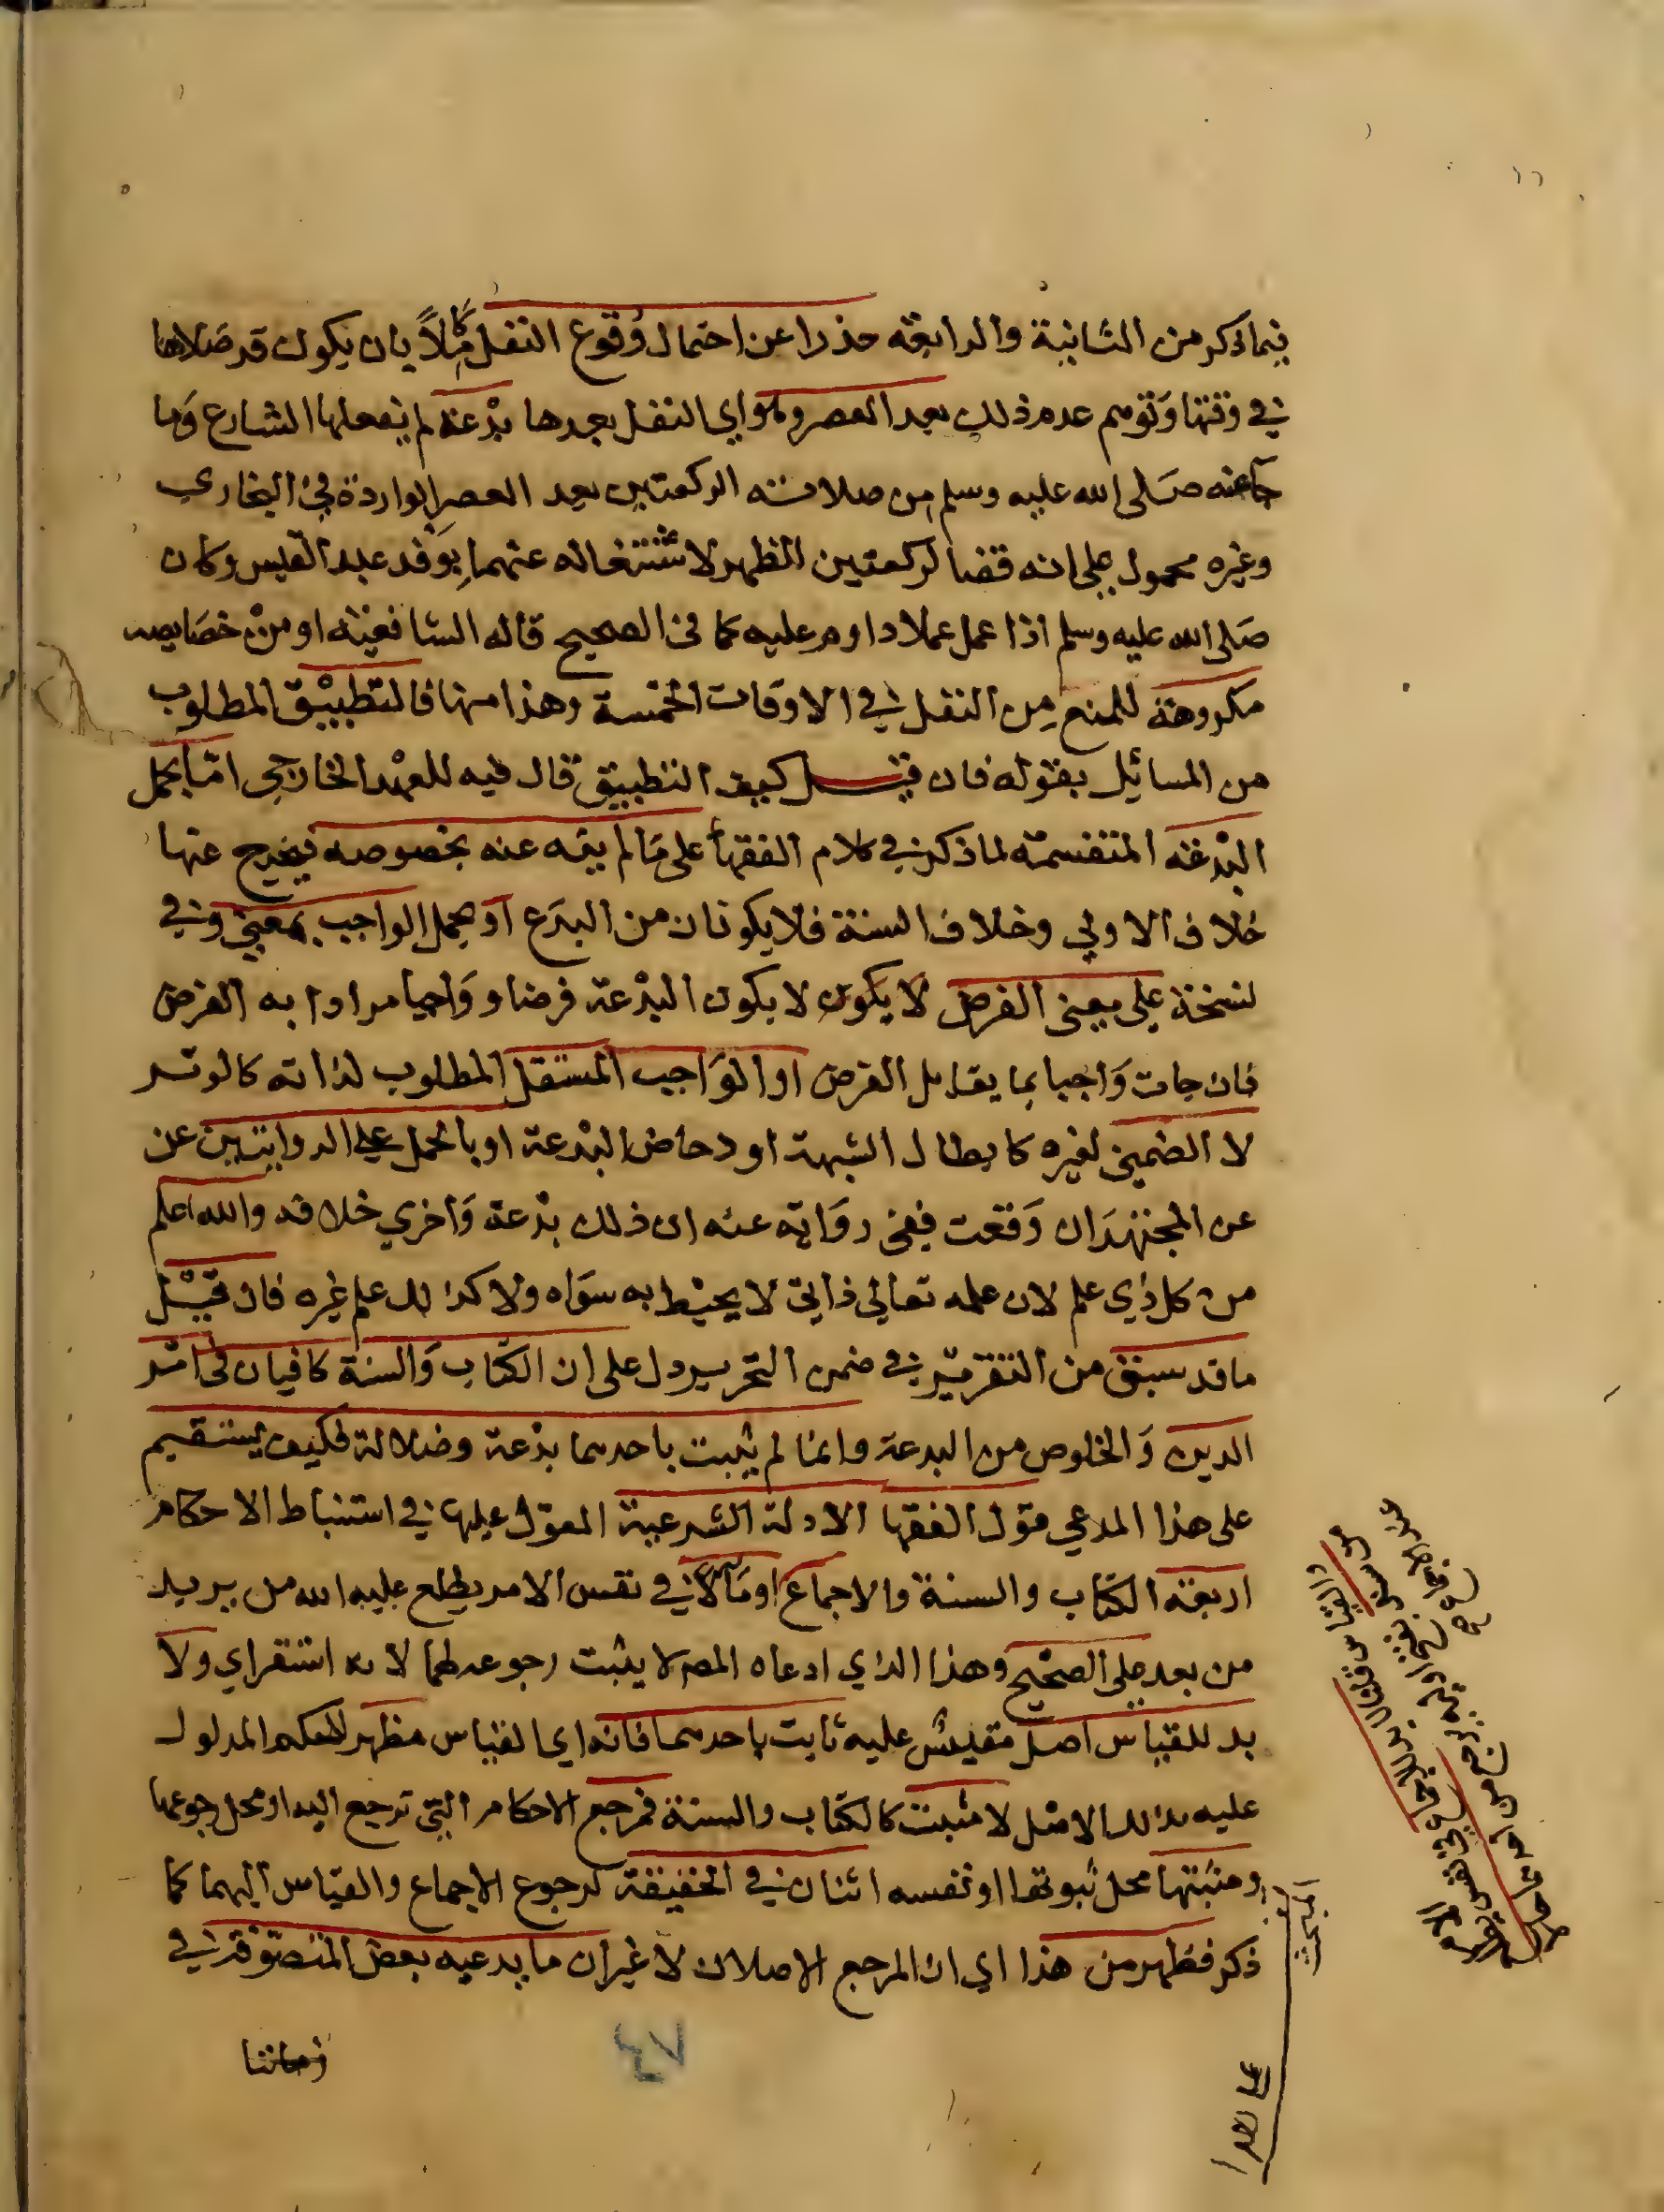 فيما ذكر من الثانية والرابعة حذرا عن احتمال وُقوع النفل كاملاً بان يكون قد صَلاها
في وقتها وَتوهم عدم ذلك بعد العصر وهو اي النفل بعدها بدْعة لم يفعلها الشارع وَما
جآ عنه صَلى الله عليه وسلم من صلاته الركعتين بعد العصر الواردة في البخاري
وغيره محمول على انه قضا لركعتين الظهر لاشتغاله عنهما بوَفد عبد القيس وكان
صَلى الله عليه وسلم اذا عمل عملا داوم عليه كما في الصحيح قاله الشافعية او منْ خصَايصه
مكروهة للمنع من النفل في الاوقات الخمسة وهذا منها فالتطبيْق المطلوب
من المسائيل بقوله فان قيل كيف التطبيق قال فيه للعهْد الخارجي امّا بحمل
البدْعة المنقسمة لما ذكر في كلام الفقهأ على مَا لم ينه عنه بخصوصه فيخرج عنها
خلاف الاولي وخلاف السنة فلا يكونان من البدَع او بحمل الواجب بمعني وفي
نسخة على معنى الفرض لا يكون لا يكون البدْعة فرضا و وَاجبا مرادا به الفرض
فان جات وَاجبا بما يقابل الفرض او الوَاجب المستقل المطلوب لذاته كالوتر
لا الضمني لغيره كابطال الشبهة او دحاض البدْعة او بالحمل على الروايتين عن
عن المجتهدَان وَقعت ففى روَاية عنه ان ذلك بدْعة وَاخري خلافه والله اعلم
من كل ذي علم لان علمه تعالي ذاتي لا يحيْط به سوَاه ولا كذلك علم غيره فان قيْل
ما قد سبق من التقرير في ضمن التحرير دل على ان الكتاب وَالسنة كافيان في امْر
الدين وَالخلوص من البدعة وانما لم يثبت باحدهما بدْعة وضلالة فكيف يستقيم
على هذا المدعي قول الفقها الادلة الشرعية المعوّل عليها في استنباط الاحكام
اربعة الكتاب والسنة والاجماع او مَآلاً في نفس الامر يطلع عليه الله من يريد
من بعد على الصحيْح وهذا الذي ادعاه المصـ لا يثبت رجوعه لهما لانه استقراي ولا
بد للقياس اصل مقيسُ عليه ثابت باحدهما فانه اي القياس مظهر للحكم المدلول
عليه بذلك الاصْل لا مثبت كالكتاب والسنة فمرجع الاحكام التي ترجع اليه او محل رجوعها
ومثبَتها محل ثبوتها او نفسه اثنان في الحقيقة لرجوع الاجماع والقيَاس اليهما كما
ذكر فظهر من هذا اي ان المرجع الاصلان لا غير ان ما يدعيه بعض المتصوّفة في
زماننا
٤٧